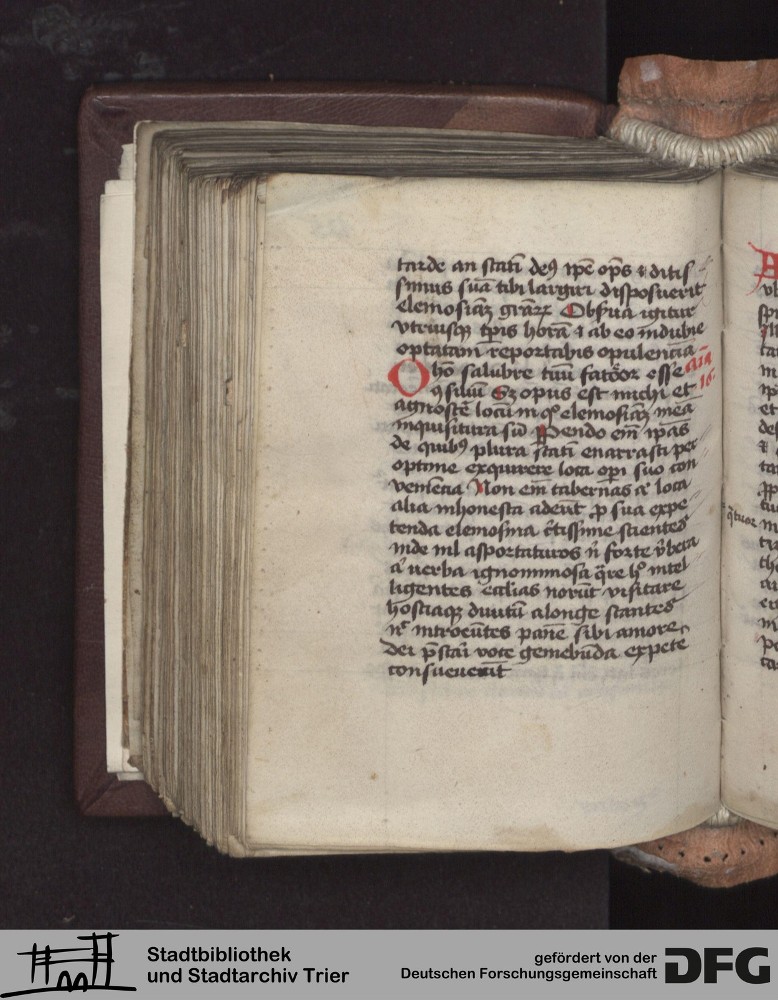 tarde an statī deꝰ ip̄e op̄s ⁊ ditis
simus suā tibi largiri disposuerit
elemosiā gr̄aꝝ Obẜua igitur
vtriusqꝫ tp̄is horā ⁊ ab eo īndubie
optatam reportabis opulenciā
O ho salubre tuū fateor esse aīa
ꝯsiliū Sꝫ opus est michi et 16
agnoscē locū in qͦ elemosiā meā
inquisitura sū Pendo em̄ ip̄as
de quibꝰ plura statī enarrasti per
optime exquirere loca op̄i suo con
veniēcia Non em̄ tabernas aͨ loca
alia inhonesta adeūt ꝓ sua expe
tenda elemosina c̄tissime scientes
inde nil asportaturos n̄ forte v̄bera
aͨ verba ignominiosa q̄re hͦ intel
ligentes eccl̄ias norūt visitare
hostiaqꝫ diuitū alonge stantes
nͨ introeūtes panē sibi amore
dei p̄stari voce gemebūda expete
consueuerūt
qͣtuor
Stadtbibliothek
und Stadtarchiv Trier
gefördert von der
Deutschen Forschungsgemeinschaft
DFG